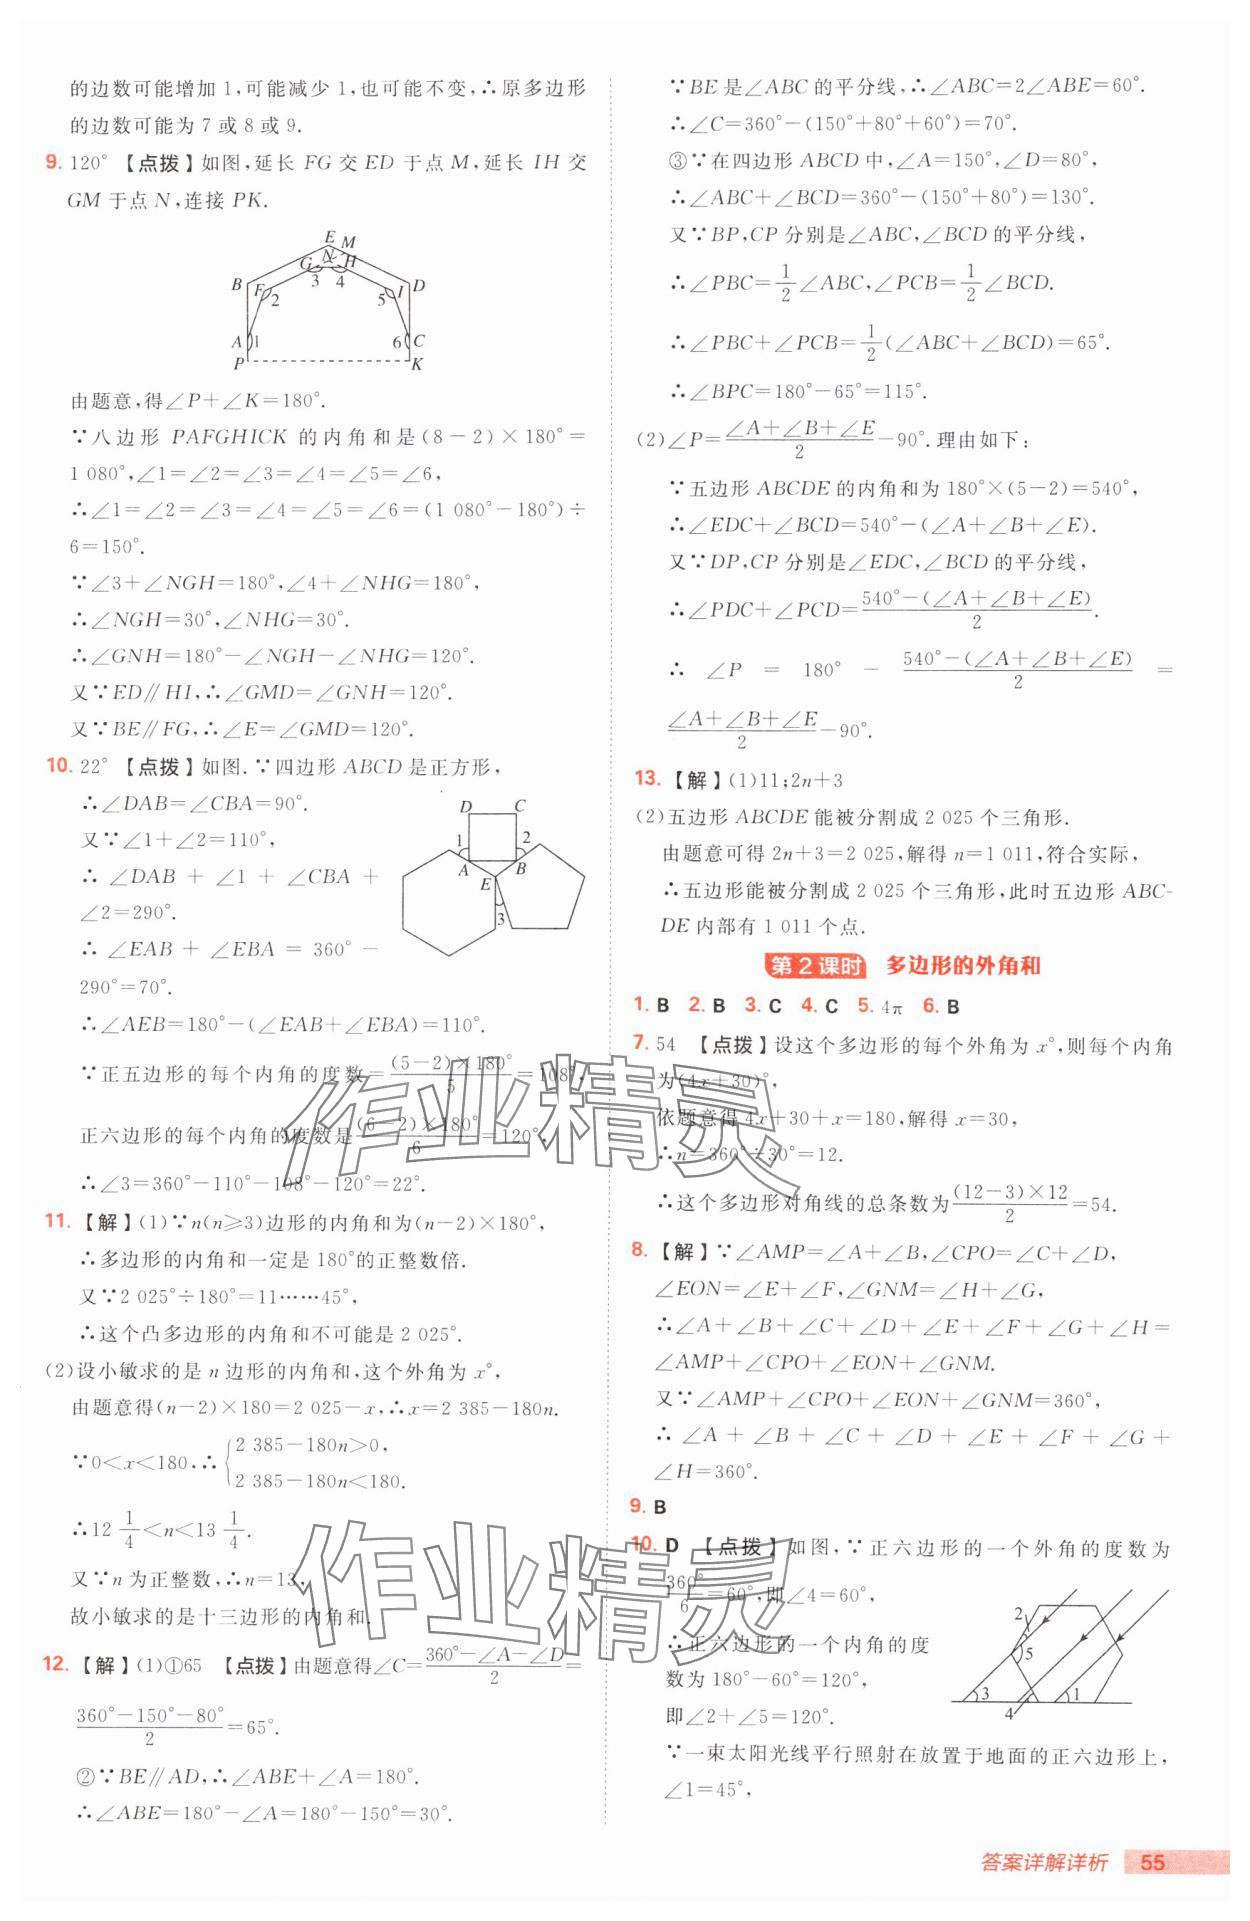 的边数可能增加 1,可能减少 1,也可能不变,∴原多边形
的边数可能为 7 或 8 或 9.
9. 120° 【点拨】如图,延长 FG 交 ED 于点 M,延长 IH 交
GM 于点 N,连接 PK.
E M
N
G H
B F 3 4 I D
2 5
A 1 6 C
P K
由题意,得∠P+∠K=180°.
∵八边形 PAFGHICK 的内角和是(8-2)×180°=
1 080°,∠1=∠2=∠3=∠4=∠5=∠6,
∴∠1=∠2=∠3=∠4=∠5=∠6=(1 080°-180°)÷
6=150°.
∵∠3+∠NGH=180°,∠4+∠NHG=180°,
∴∠NGH=30°,∠NHG=30°.
∴∠GNH=180°-∠NGH-∠NHG=120°.
又∵ED∥HI,∴∠GMD=∠GNH=120°.
又∵BE∥FG,∴∠E=∠GMD=120°.
10. 22° 【点拨】如图.∵四边形 ABCD 是正方形,
∴∠DAB=∠CBA=90°.
又∵∠1+∠2=110°,
∴∠DAB+∠1+∠CBA+
∠2=290°.
∴∠EAB+∠EBA=360°-
290°=70°.
D C
1 2
A B
E
3
∴∠AEB=180°-(∠EAB+∠EBA)=110°.
∵正五边形的每个内角的度数=(5-2)×180°/5=108°,
正六边形的每个内角的度数是(6-2)×180°/6=120°,
∴∠3=360°-110°-108°-120°=22°.
11. 【解】(1)∵n(n≥3)边形的内角和为(n-2)×180°,
∴多边形的内角和一定是 180°的正整数倍.
又∵2 025°÷180°=11……45°,
∴这个凸多边形的内角和不可能是 2 025°.
(2)设小敏求的是 n 边形的内角和,这个外角为 x°,
由题意得(n-2)×180=2 025-x,∴x=2 385-180n.
∵0<x<180,∴{2 385-180n>0,
2 385-180n<180.
∴12 1/4<n<13 1/4.
又∵n 为正整数,∴n=13,
故小敏求的是十三边形的内角和.
12. 【解】(1)①65 【点拨】由题意得∠C=(360°-∠A-∠D)/2=
(360°-150°-80°)/2=65°.
②∵BE∥AD,∴∠ABE+∠A=180°.
∴∠ABE=180°-∠A=180°-150°=30°.
∵BE 是∠ABC 的平分线,∴∠ABC=2∠ABE=60°.
∴∠C=360°-(150°+80°+60°)=70°.
③∵在四边形 ABCD 中,∠A=150°,∠D=80°,
∴∠ABC+∠BCD=360°-(150°+80°)=130°.
又∵BP,CP 分别是∠ABC,∠BCD 的平分线,
∴∠PBC=1/2∠ABC,∠PCB=1/2∠BCD.
∴∠PBC+∠PCB=1/2(∠ABC+∠BCD)=65°.
∴∠BPC=180°-65°=115°.
(2)∠P=(∠A+∠B+∠E)/2-90°.理由如下:
∵五边形 ABCDE 的内角和为 180°×(5-2)=540°,
∴∠EDC+∠BCD=540°-(∠A+∠B+∠E).
又∵DP,CP 分别是∠EDC,∠BCD 的平分线,
∴∠PDC+∠PCD=(540°-(∠A+∠B+∠E))/2.
∴ ∠P = 180° - (540°-(∠A+∠B+∠E))/2 =
(∠A+∠B+∠E)/2-90°.
13. 【解】(1)11;2n+3
(2)五边形 ABCDE 能被分割成 2 025 个三角形.
由题意可得 2n+3=2 025,解得 n=1 011,符合实际,
∴五边形能被分割成 2 025 个三角形,此时五边形 ABC-
DE 内部有 1 011 个点.
第 2 课时 多边形的外角和
1. B 2. B 3. C 4. C 5. 4π 6. B
7. 54 【点拨】设这个多边形的每个外角为 x°,则每个内角
为(4x+30)°,
依题意得 4x+30+x=180,解得 x=30,
∴n=360°÷30°=12.
∴这个多边形对角线的总条数为(12-3)×12/2=54.
8. 【解】∵∠AMP=∠A+∠B,∠CPO=∠C+∠D,
∠EON=∠E+∠F,∠GNM=∠H+∠G,
∴∠A+∠B+∠C+∠D+∠E+∠F+∠G+∠H=
∠AMP+∠CPO+∠EON+∠GNM.
又∵∠AMP+∠CPO+∠EON+∠GNM=360°,
∴∠A+∠B+∠C+∠D+∠E+∠F+∠G+
∠H=360°.
9. B
10. D 【点拨】如图,∵正六边形的一个外角的度数为
360°/6=60°,即∠4=60°,
∴正六边形的一个内角的度
数为 180°-60°=120°,
即∠2+∠5=120°.
2
5
3 1
4
∵一束太阳光线平行照射在放置于地面的正六边形上,
∠1=45°,
答案详解详析 55
作业精灵
作业精灵